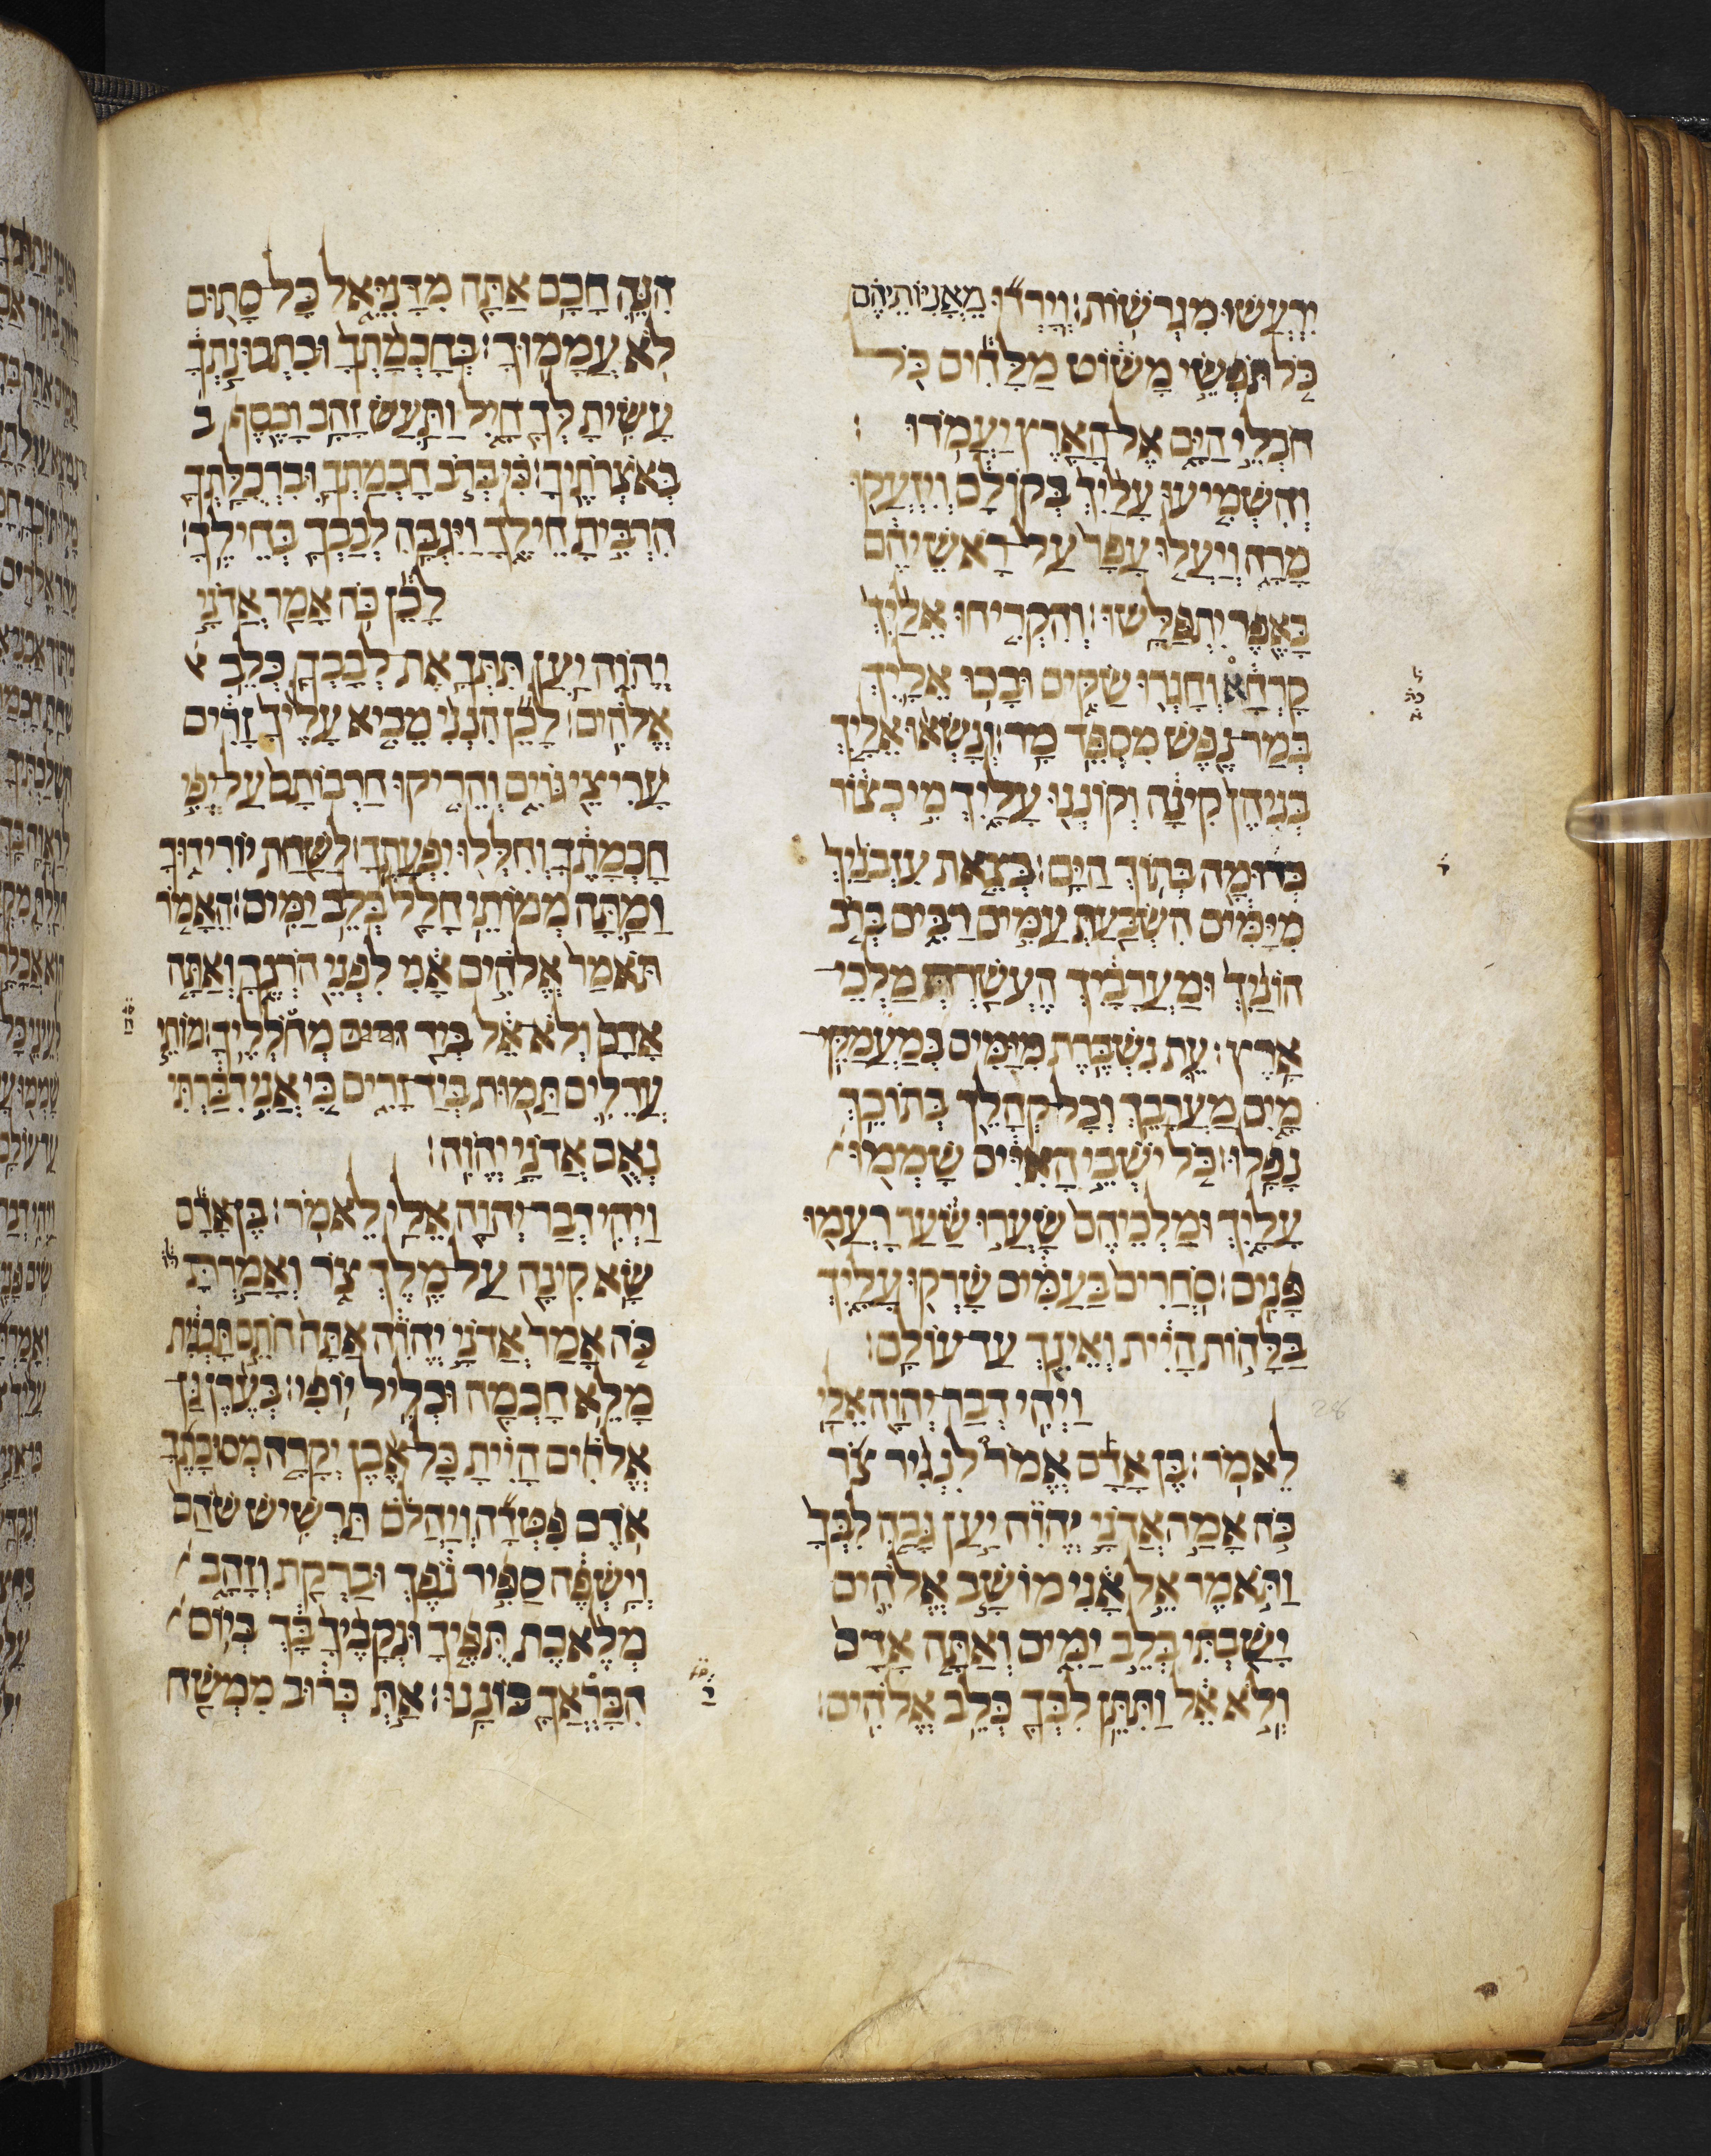 יִרְעֲשׁוּ מִגְרֹשׁוֹת׃ וְיָרְדוּ מֵאֳנִיּוֹתֵיהֶם
כָּל תֹּפְשֵׂי מָשׁוֹט מַלָּחִים כֹּל
חֹבְלֵי הַיָּם אֶל הָאָרֶץ יַעֲמֹדוּ׃
וְהִשְׁמִיעוּ עָלַיִךְ בְּקוֹלָם וְיִזְעֲקוּ
מָרָה וְיַעֲלוּ עָפָר עַל רָאשֵׁיהֶם
בָּאֵפֶר יִתְפַּלָּשׁוּ׃ וְהִקְרִיחוּ אֵלַיִךְ
קָרְחָא וְחָגְרוּ שַׂקִּים וּבָכוּ אֵלַיִךְ
בְּמַר נֶפֶשׁ מִסְפֵּד מָר׃ וְנָשְׂאוּ אֵלַיִךְ
בְּנִיהֶן קִינָה וְקוֹנְנוּ עָלָיִךְ מִי כְצוֹר
כְּדוּמָה בְּתוֹךְ הַיָּם׃ בְּצֵאת עִזְבוֹנַיִךְ
מִיַּמִּים הִשְׂבַּעַתְּ עַמִּים רַבִּים בְּרֹב
הוֹנַיִךְ וּמַעֲרָבַיִךְ הֶעֱשַׁרְתְּ מַלְכֵי
אָרֶץ׃ עֵת נִשְׁבֶּרֶת מִיַּמִּים בְּמַעֲמַקֵּי
מָיִם מַעֲרָבֵךְ וְכָל קְהָלֵךְ בְּתוֹכֵךְ
נָפָלוּ׃ כֹּל יֹשְׁבֵי הָאִיִּים שָׁמְמוּ
עָלָיִךְ וּמַלְכֵיהֶם שָׂעֲרוּ שַׂעַר רָעֲמוּ
פָּנִים׃ סֹחֲרִים בָּעַמִּים שָׁרְקוּ עָלָיִךְ
בַּלָּהוֹת הָיִית וְאֵינֵךְ עַד עוֹלָם׃
וַיְהִי דְבַר יְהוָה אֵלַי
לֵאמֹר׃ בֶּן אָדָם אֱמֹר לִנְגִיד צֹר
כֹּה אָמַר אֲדֹנָי יֱהוִה יַעַן גָּבַהּ לִבְּךָ
וַתֹּאמֶר אֵל אָנִי מוֹשַׁב אֱלֹהִים
יָשַׁבְתִּי בְּלֵב יַמִּים וְאַתָּה אָדָם
וְלֹא אֵל וַתִּתֵּן לִבְּךָ כְּלֵב אֱלֹהִים׃
הִנֵּה חָכָם אַתָּה מִדָּנִאֵל כָּל סָתוּם
לֹא עֲמָמוּךָ׃ בְּחָכְמָתְךָ וּבִתְבוּנָתְךָ
עָשִׂיתָ לְּךָ חָיִל וַתַּעַשׂ זָהָב וָכֶסֶף ב
בְּאֹצְרֹתֶיךָ׃ כִּי בְּרֹב חָכְמָתְךָ וּבִרְכֻלָּתְךָ
הִרְבִּיתָ חֵילֶךָ וַיִּגְבַּהּ לְבָבְךָ בְּחֵילֶךָ׃
לָכֵן כֹּה אָמַר אֲדֹנָי
יֱהוִה יַעַן תִּתְּךָ אֶת לְבָבְךָ כְּלֵב
אֱלֹהִים׃ לָכֵן הִנְנִי מֵבִיא עָלֶיךָ זָרִים
עָרִיצֵי גּוֹיִם וְהֵרִיקוּ חַרְבוֹתָם עַל יְפִי
חָכְמָתֶךָ וְחִלְּלוּ יִפְעָתֶךָ׃ לַשַּׁחַת יוֹרִידוּךָ
וָמַתָּה מְמוֹתֵי חָלָל בְּלֵב יַמִּים׃ הֶאָמֹר
תֹּאמַר אֱלֹהִים אָנִי לִפְנֵי הֹרְגֶךָ וְאַתָּה
אָדָם וְלֹא אֵל בְּיַד מְחֹלְלֶיךָ׃ מוֹתֵי
עֲרֵלִים תָּמוּת בְּיַד זָרִים כִּי אֲנִי דִבַּרְתִּי
נְאֻם אֲדֹנָי יֱהוִה׃
וַיְהִי דְבַר יְהוָה אֵלַי לֵאמֹר׃ בֶּן אָדָם
שָׂא קִינָה עַל מֶלֶךְ צֹר וְאָמַרְתָּ לּוֹ
כֹּה אָמַר אֲדֹנָי יֱהוִה אַתָּה חוֹתֵם תָּכְנִית
מָלֵא חָכְמָה וּכְלִיל יוֹפִי׃ בְּעֵדֶן גַּן
אֱלֹהִים הָיִיתָ כָּל אֶבֶן יְקָרָה מְסוּכָתֶךָ
אֹדֶם פִּטְדָה וְיָהֲלֹם תַּרְשִׁישׁ שֹׁהַם
וְיָשְׁפֶה סַפִּיר נֹפֶךְ וּבָרְקַת וְזָהָב
מְלֶאכֶת תֻּפֶּיךָ וּנְקָבֶיךָ בָּךְ בְּיוֹם
הִבָּרַאֲךָ כּוֹנָנוּ׃ אַתְּ כְּרוּב מִמְשַׁח